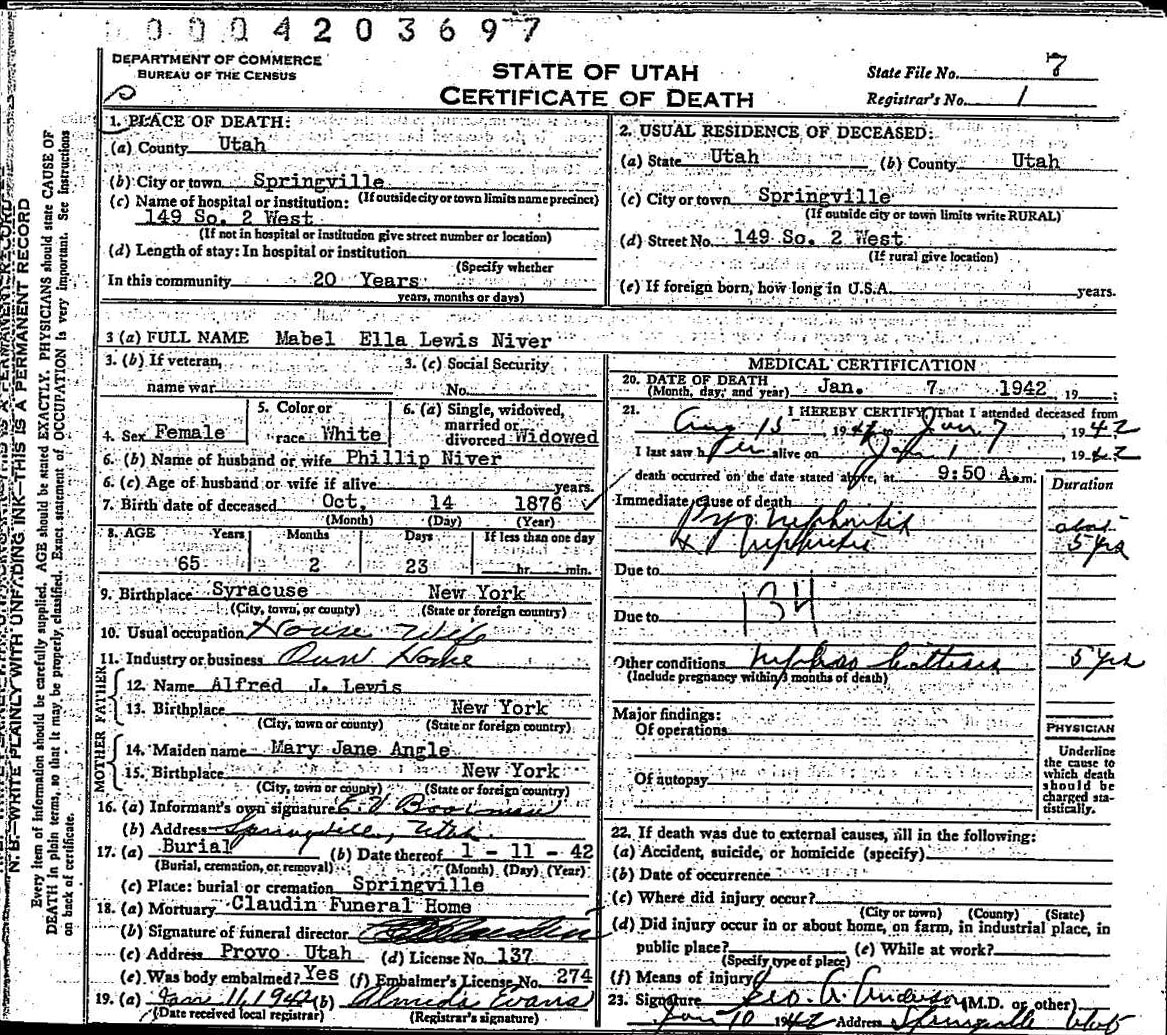 0004203697
DEPARTMENT OF COMMERCE
BUREAU OF THE CENSUS
STATE OF UTAH
CERTIFICATE OF DEATH
State File No. 7
Registrar's No. 1
N. B.—WRITE PLAINLY WITH UNFADING INK—THIS IS A PERMANENT RECORD
Every item of information should be carefully supplied. AGE should be stated EXACTLY. PHYSICIANS should state CAUSE OF
DEATH in plain terms, so that it may be properly classified. Exact statement of OCCUPATION is very important. See instructions
on back of certificate.
1. PLACE OF DEATH:
(a) County Utah
(b) City or town Springville
(If outside city or town limits name precinct)
(c) Name of hospital or institution:
149 So. 2 West
(If not in hospital or institution give street number or location)
(d) Length of stay: In hospital or institution
(Specify whether
In this community 20 Years
years, months or days)
2. USUAL RESIDENCE OF DECEASED:
(a) State Utah (b) County Utah
(c) City or town Springville
(If outside city or town limits write RURAL)
(d) Street No. 149 So. 2 West
(If rural give location)
(e) If foreign born, how long in U.S.A. years.
3 (a) FULL NAME Mabel Ella Lewis Niver
3. (b) If veteran,
name war
3. (c) Social Security
No.
4. Sex Female
5. Color or
race White
6. (a) Single, widowed,
married or
divorced Widowed
6. (b) Name of husband or wife Phillip Niver
6. (c) Age of husband or wife if alive years.
7. Birth date of deceased Oct. 14 1876
(Month) (Day) (Year)
8. AGE Years Months Days If less than one day
65 2 23 hr. min.
9. Birthplace Syracuse New York
(City, town, or county) (State or foreign country)
10. Usual occupation House Wife
11. Industry or business Own Home
FATHER
12. Name Alfred J. Lewis
13. Birthplace New York
(City, town or county) (State or foreign country)
MOTHER
14. Maiden name Mary Jane Angle
15. Birthplace New York
(City, town or county) (State or foreign country)
16. (a) Informant's own signature E. V.
(b) Address Springville, Utah
17. (a) Burial (b) Date thereof 1 - 11 - 42
(Burial, cremation, or removal) (Month) (Day) (Year)
(c) Place: burial or cremation Springville
18. (a) Mortuary Claudin Funeral Home
(b) Signature of funeral director
(c) Address Provo Utah (d) License No. 137
(e) Was body embalmed? Yes (f) Embalmer's License No. 274
19. (a) Jan 11, 1942 (b) Almeda Evans
(Date received local registrar) (Registrar's signature)
MEDICAL CERTIFICATION
20. DATE OF DEATH
(Month, day, and year) Jan. 7 1942, 19 ;
21. I HEREBY CERTIFY, That I attended deceased from
Aug 15 19 to Jan 7, 1942
I last saw her alive on Jan 1, 1942
death occurred on the date stated above, at 9:50 A.m.
Duration
Immediate cause of death
Pyo nephritis
about
5 yrs
Due to
134
Due to
Other conditions 5 yrs
(Include pregnancy within 3 months of death)
Major findings:
Of operations
Of autopsy
PHYSICIAN
Underline
the cause to
which death
should be
charged sta-
tistically.
22. If death was due to external causes, fill in the following:
(a) Accident, suicide, or homicide (specify)
(b) Date of occurrence
(c) Where did injury occur?
(City or town) (County) (State)
(d) Did injury occur in or about home, on farm, in industrial place, in
public place? (e) While at work?
(Specify type of place)
(f) Means of injury
23. Signature Geo. A. Anderson (M.D. or other)
Jan 10 1942 Address Springville Utah